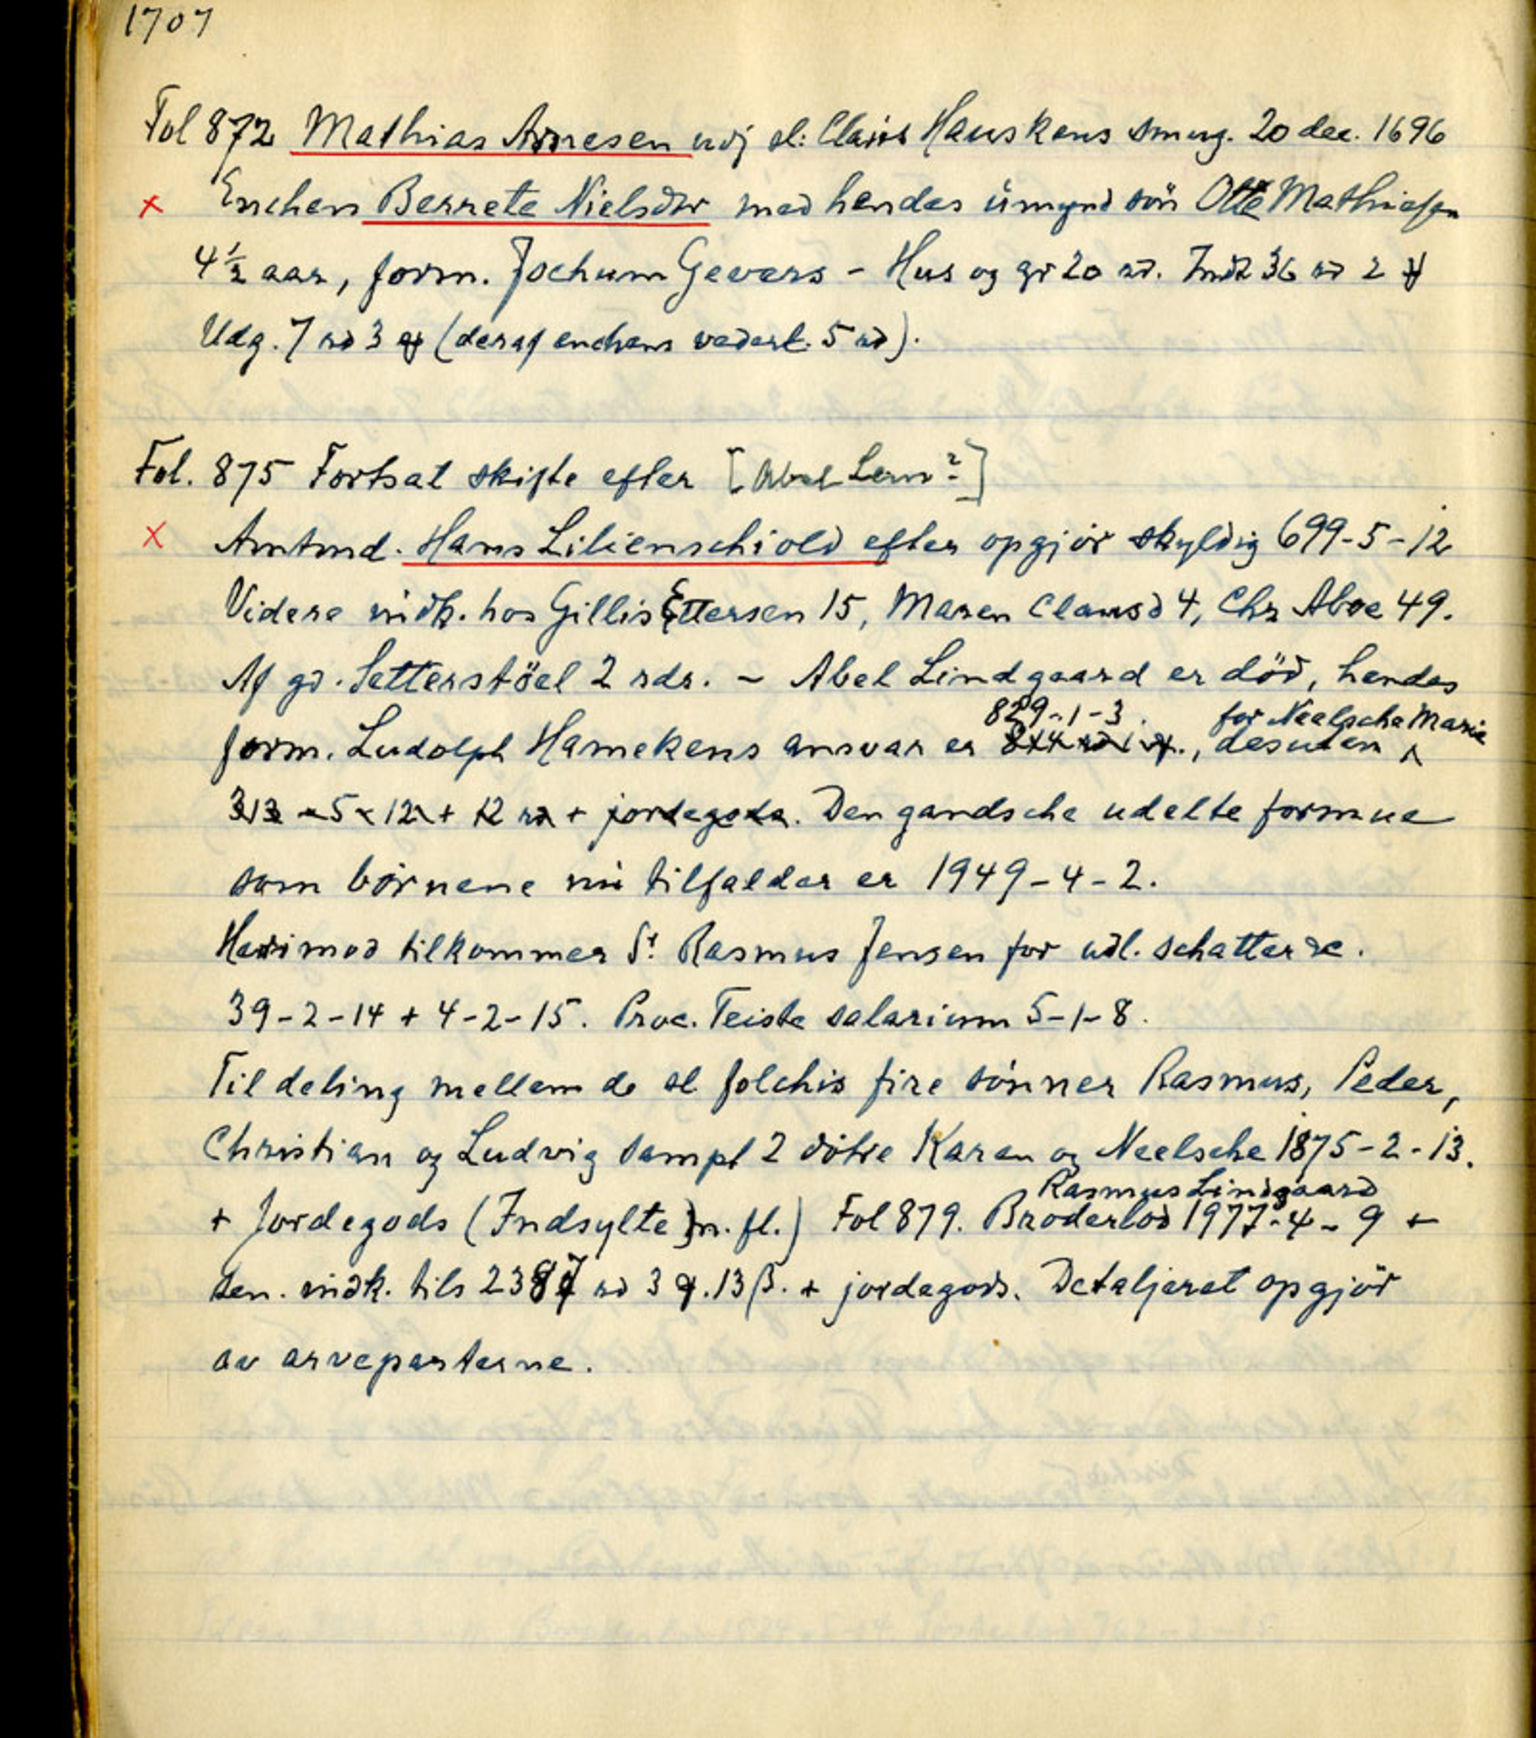 1707
Fol 872 Mathias Arnesen udj sl: Claus Hauskens smug. 20 dec. 1696
x Enchen Berrete Nielsdtr med hendes umynd sön Otte Mathiesen
4 1/2 aar, form. Jochum Gevers - Hus og gr 20 rd. Indt 36 rd 2 ɥ
Udg. 7 rd 3 (deraf enchens vederl. 5 rd).
Fol. 875 Fortsat skifte efter [Abel Lem?]
x Amtmd. Hans Lilienschiold efter opgjör skyldig 699-5-12
Videre indk. hos Gillis Ettersen 15, Maren Clausd 4, Chr Aboe 49.
Af gd. Setterstöel 2 rdr. - Abel Lindgaard er död, hendes
829-1-3. for Neelsche Marie
form. Ludolph Hamekens ansvar er , desuten ^
313-5-12 + 12 rd + jordegods. Den gandsche udelte formue
som börnene nu tilfalder er 1949-4-2.
Herimod tilkommer Sr. Rasmus Jensen for udl. schatter &c.
39-2-14 + 4-2-15. Proc. Teiste salarium 5-1-8.
Til deling mellem de sl folchis fire sönner Rasmus, Peder,
Christian og Ludvig sampt 2 dötre Karen og Neelsche 1875-2-13.
Rasmus Lindgaard
+ Jordegods (Indsylte m. fl.) Fol 879. Broderlod 1977-4-9 +
sen. indk. tils 2387 rd 3 ɥ. 13 β. + jordegods. Detaljeret opgjör
av arveparterne.